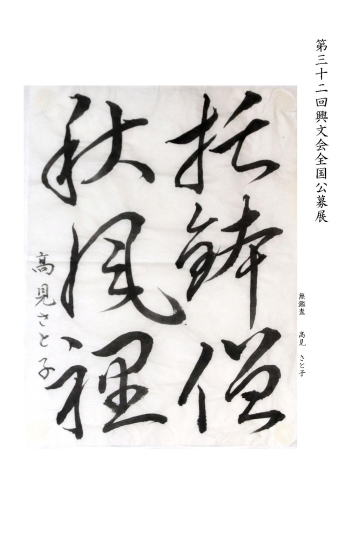 第三十二回興文会全国公募展
無鑑査 高見 さと子
托鉢僧
秋風裡
高見さと子